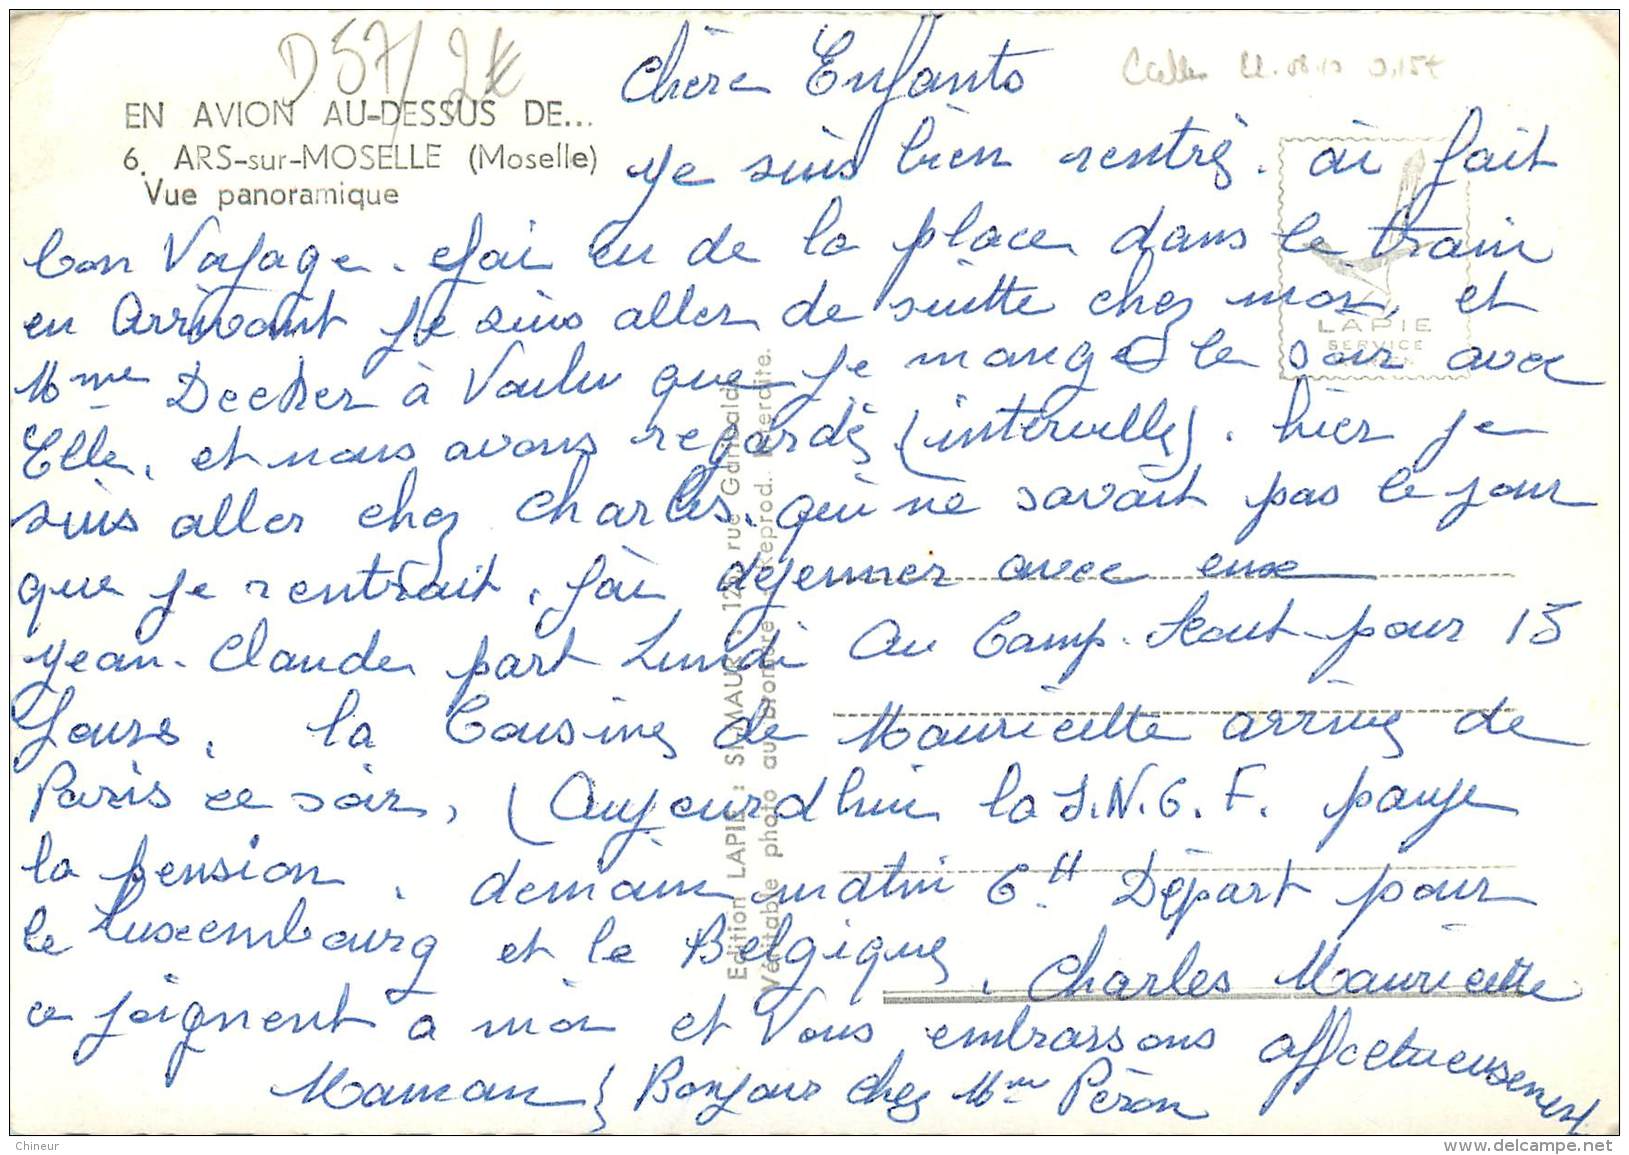 D 57/ 2€
EN AVION AU-DESSUS DE...
6. ARS-sur-MOSELLE (Moselle)
Vue panoramique
LAPIE
SERVICE
Chère Enfants
Je suis bien rentré. ai fait
bon Voyage. J'ai eu de la place dans le train
en Arrivant je suis aller de suitte chez moi, et
Mme Decker à Voulu que je mange le soir avec
Elle, et nous avons regardé (intervilles). hier je
suis aller chez Charles. qui ne savait pas le jour
que je rentrait. j'ai dejenner avec eux
Jean-Claude part Lundi Au Camp-Scout pour 15
Jours. la Cousine de Mauricette arrive de
Paris ce soir, (Aujourdhui la S.N.C.F. paye
la pension. demain matin 6H Départ pour
le Luxembourg et le Belgique. Charles Mauricette
ce joignent a moi et Vous embrassons affectueusement
Maman Bonjour chez Mme Péron
Edition LAPIE : ST-MAUR - rue Garibaldi
Véritable photo au bromure - Reprod. Interdite.
Chineur
www.delcampe.net